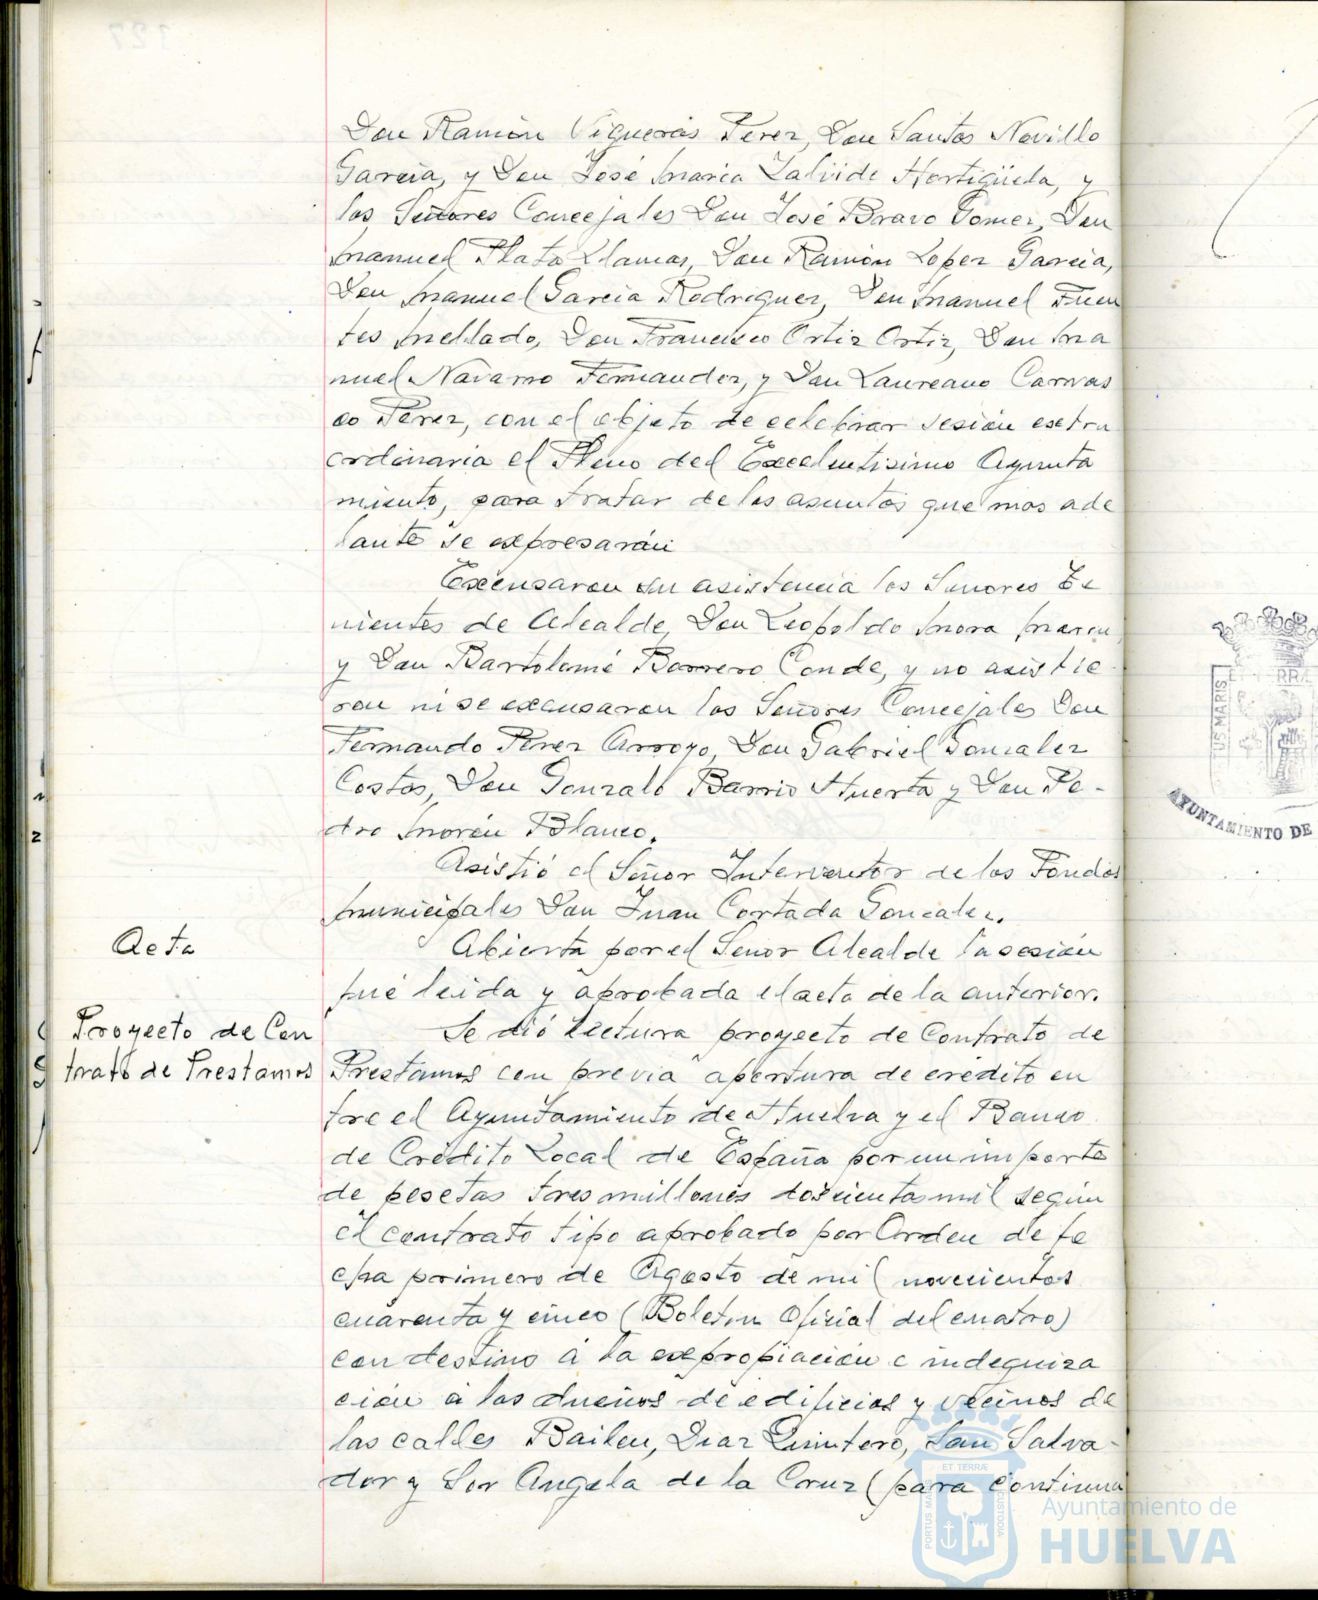 Don Ramón Vigueras Perez, Don Santos Novillo
Garcia, y Don José Maria Zalvide Hortigüela, y
los Señores Concejales Don José Bravo Gomez, Don
Manuel Plata Llamas, Don Ramón Lopez Garcia,
Don Manuel Garcia Rodriguez, Don Manuel Fuen
tes Mellado, Don Francisco Ortiz Ortiz, Don Ma
nuel Navarro Fernandez, y Don Laureano Carras
co Perez, con el objeto de celebrar sesión extra
ordinaria el Pleno del Excelentisimo Ayunta
miento, para tratar de los asuntos que mas ade
lante se expresarán
Excusaron su asistencia los Señores Te
nientes de Alcalde, Don Leopoldo Mora
y Don Bartolomé Barrero Conde, y no asistie-
ron ni se excusaron los Señores Concejales Don
Fernando Perez Arroyo, Don Gabriel Gonzalez
Costas, Don Gonzalo Barrio Huerta y Don Pe-
dro Morón Blanco.
Asistió el Señor Interventor de los Fondos
Municipales Don Juan Cortada Gonzalez.
Acta
Abierta por el Señor Alcalde la sesión
fué leida y aprobada el acta de la anterior.
Proyecto de Con
trato de Prestamos
Se dió lectura proyecto de contrato de
Prestamos con previa apertura de crédito en
tre el Ayuntamiento de Huelva y el Banco
de Crédito Local de España por un importe
de pesetas tres millones doscientos mil según
el contrato tipo aprobado por Orden de fe
cha primero de Agosto de mil novecientos
cuarenta y cinco (Boletin Oficial del cuatro)
con destino á la expropiación e indegniza
ción á los dueños de edificios y vecinos de
las calles Bailen, Diaz Quintero, San Salva-
dor y Sor Angela de la Cruz (para continua
US MARIS
RRA
AYUNTAMIENTO DE
PORTUS MARIS
ET TERRÆ
CUSTODIA
Ayuntamiento de
HUELVA